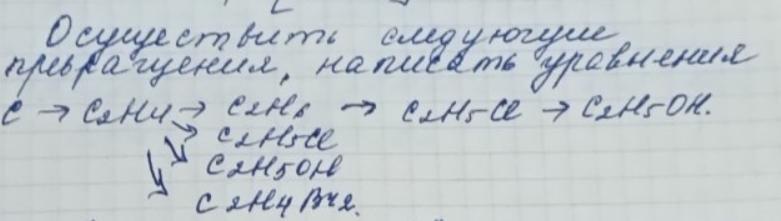 Осуществить следующие
превращения, написать уравнения
C → C2H4 → C2H6 → C2H5Cl → C2H5OH.
↘ C2H5Cl
↘ C2H5OH
↘ C2H4Br2.